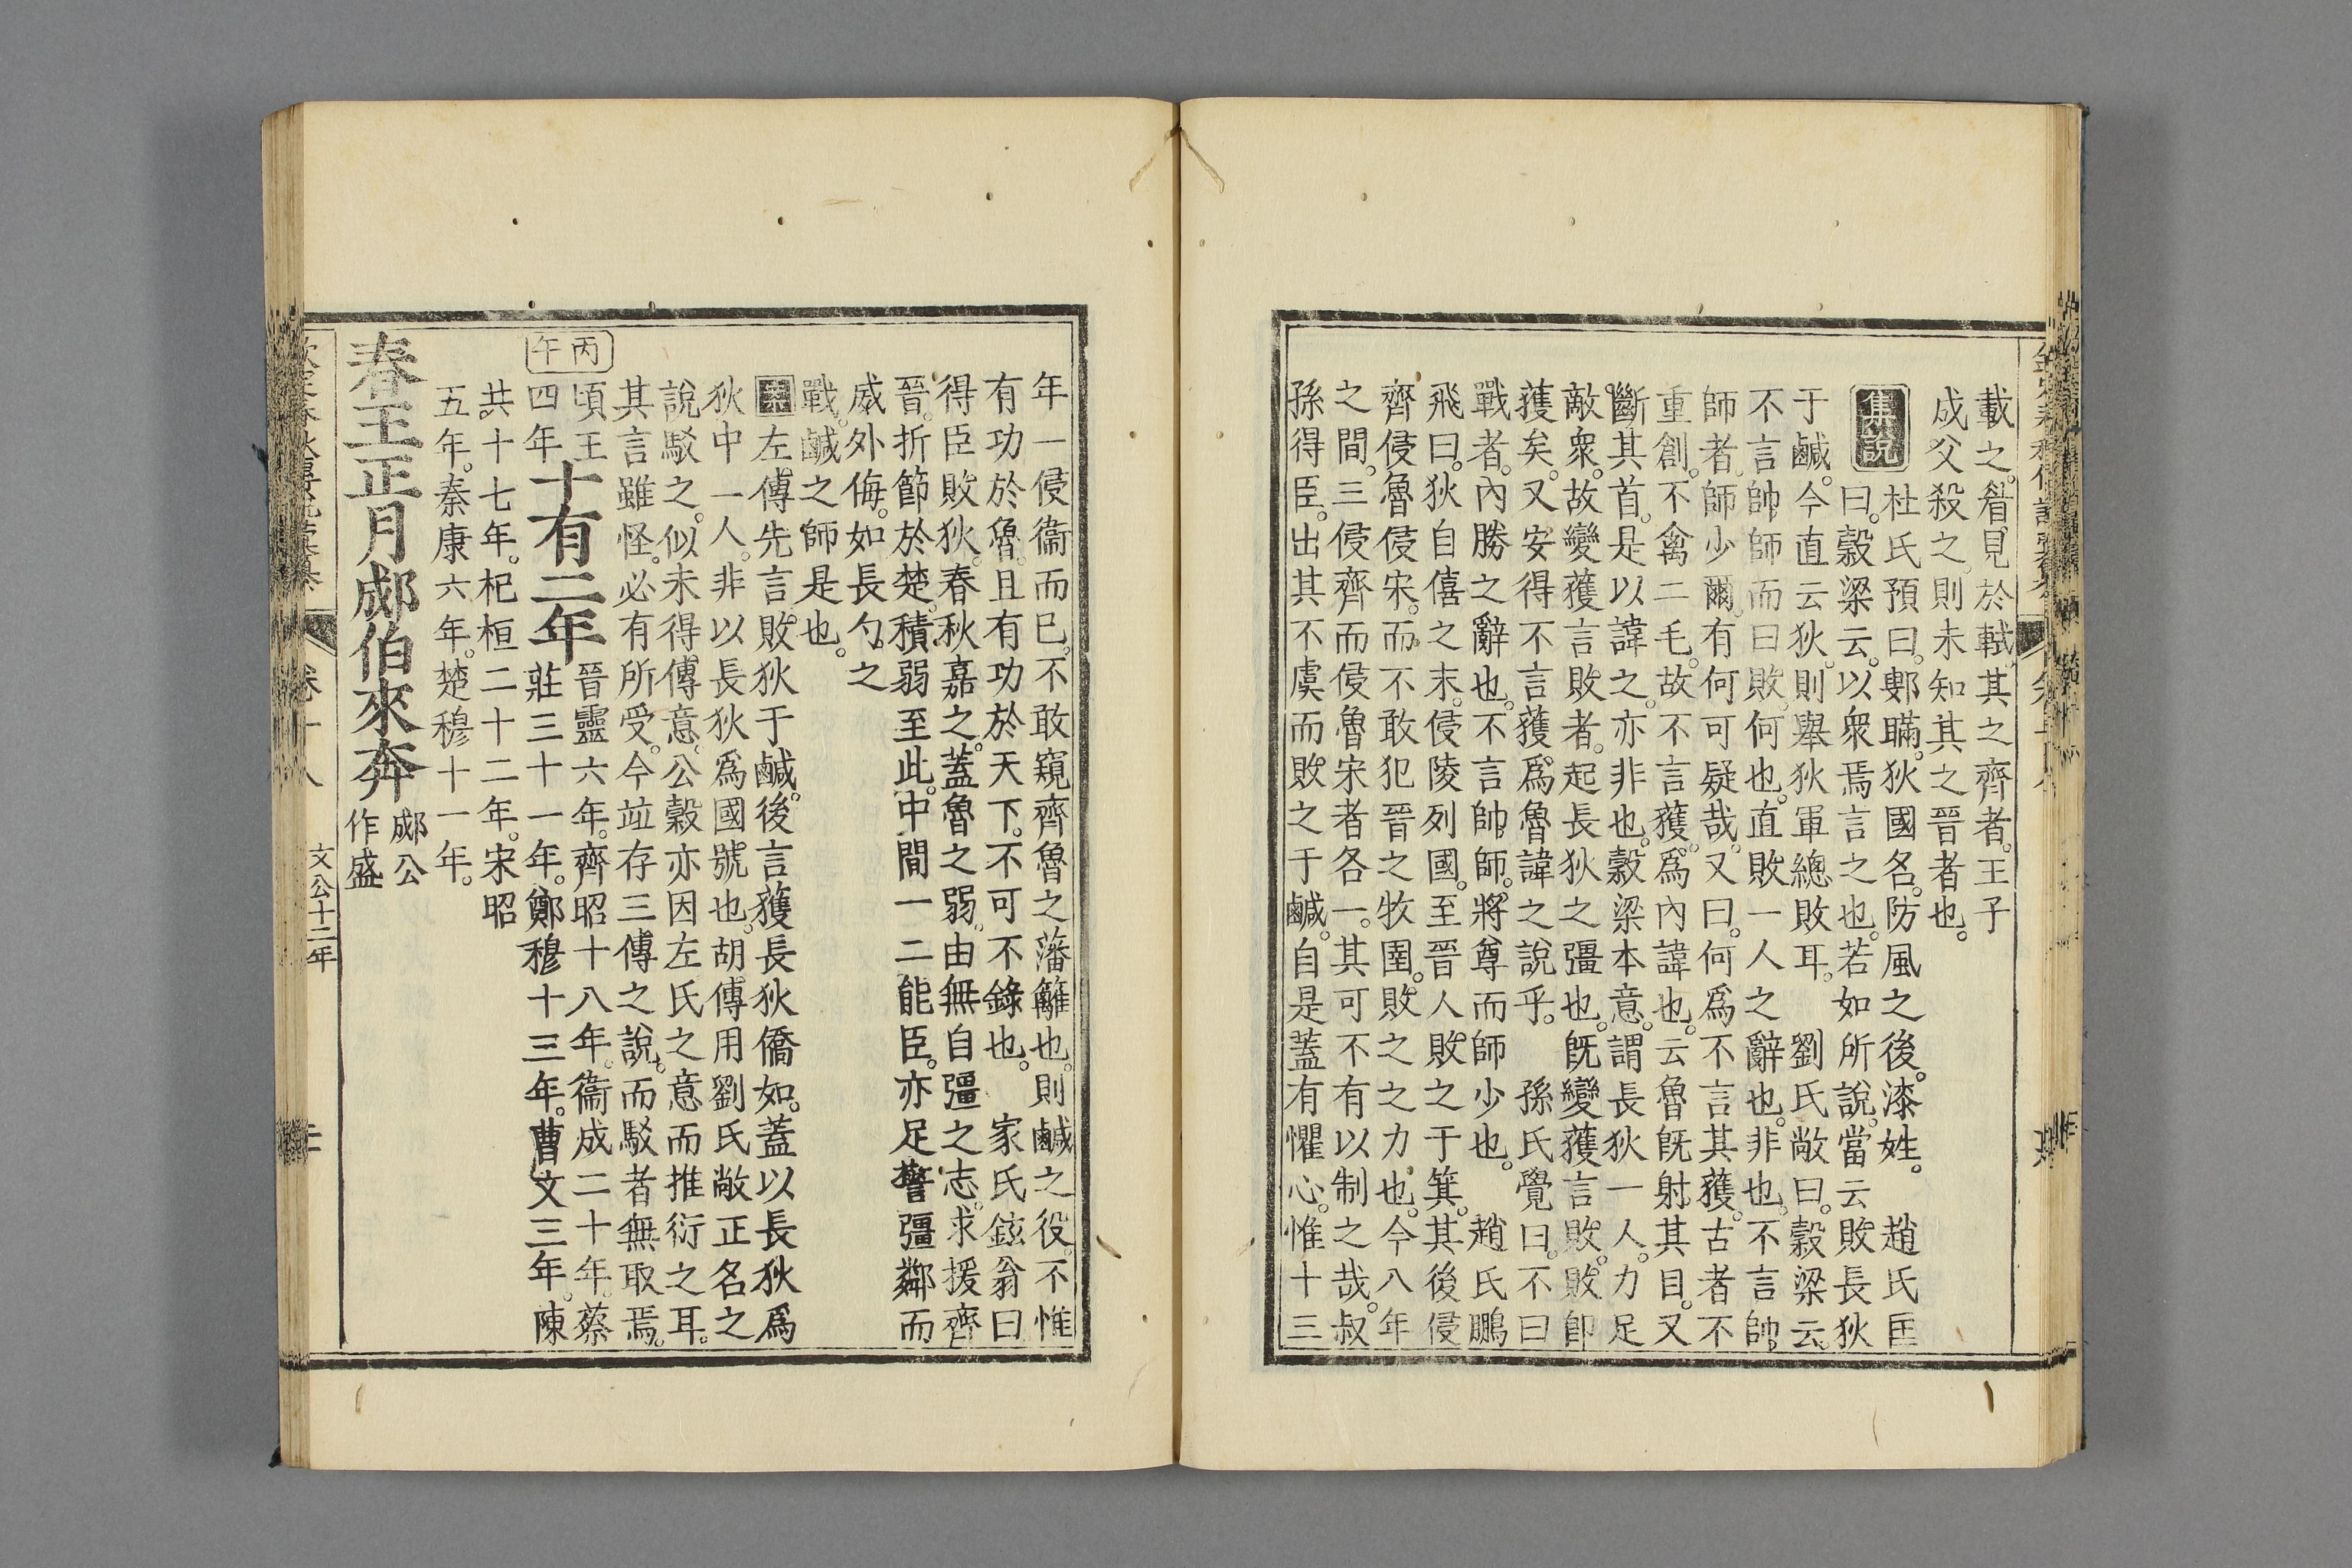 載之。眉見於軾。其之齊者。王子
成父殺之。則未知其之晉者也。
集說
杜氏預曰。鄋瞞。狄國名。防風之後。漆姓。 趙氏匡
曰。穀梁云。以衆焉言之也。若如所說。當云敗長狄
于鹹。今直云狄。則舉狄軍總敗耳。 劉氏敞曰。穀梁云。
不言帥師而曰敗。何也。直敗一人之辭也。非也。不言帥
師者。師少爾。有何可疑哉。又曰。何爲不言其獲。古者不
重創。不禽二毛。故不言獲。爲內諱也。云魯旣射其目。又
斷其首。是以諱之。亦非也。穀梁本意。謂長狄一人。力足
敵衆。故變獲言敗者。起長狄之彊也。旣變獲言敗。敗卽
獲矣。又安得不言獲。爲魯諱之說乎。 孫氏覺曰。不曰
戰者。內勝之辭也。不言帥師。將尊而師少也。 趙氏鵬
飛曰。狄自僖之末。侵陵列國。至晉人敗之于箕。其後侵
齊侵魯侵宋。而不敢犯晉之牧圉。敗之之力也。今八年
之間。三侵齊而侵魯宋者各一。其可不有以制之哉。叔
孫得臣。出其不虞而敗之于鹹。自是蓋有懼心。惟十三
年一侵衞而已。不敢窺齊魯之藩籬也。則鹹之役。不惟
有功於魯。且有功於天下。不可不錄也。 家氏鉉翁曰
得臣敗狄。春秋嘉之。蓋魯之弱。由無自彊之志。求援齊
晉。折節於楚。積弱至此。中間一二能臣。亦足讋彊鄰而
威外侮。如長勺之
戰。鹹之師是也。
案左傳先言敗狄于鹹。後言獲長狄僑如。蓋以長狄爲
狄中一人。非以長狄爲國號也。胡傳用劉氏敞正名之
說駁之。似未得傳意。公穀亦因左氏之意而推衍之耳。
其言雖怪。必有所受。今竝存三傳之說。而駁者無取焉。
丙午
頃王四年
十有二年
晉靈六年。齊昭十八年。衞成二十年。蔡
莊三十一年。鄭穆十三年。曹文三年。陳
共十七年。杞桓二十二年。宋昭
五年。秦康六年。楚穆十一年。
春王正月郕伯來奔
郕公
作盛
卷十八
文公十二年